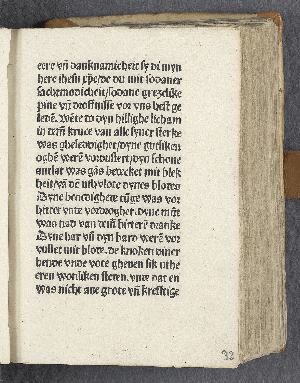 eere vñ danknamicheit sy di myn
here ihesu xpe/de du mit sodaner
sachtmodicheit/sodane grezelike
pine vñ droffnisse vor vns hest ge
ledē. wēte to dyn hillighe licham
in dem kruce van alle syner sterke
was gheleddighet/dyne gutliken
oghē werē vordustert/dyn schone
antlat was gās bedecket mit blek
heit/vñ dē uthvlote dynes blodes
Dyne benedighete tūge was vor
bittert vnde vordroghet. dyne mūt
was nad van dem bitterē dranke
Dyne har vñ dyn bard werē vor
vullet mit blode. de knoken diner
hende vnde vote gheuen sik uthe
eren wontliken steden. vnde dat en
was nicht ane grote vñ krefftige
32